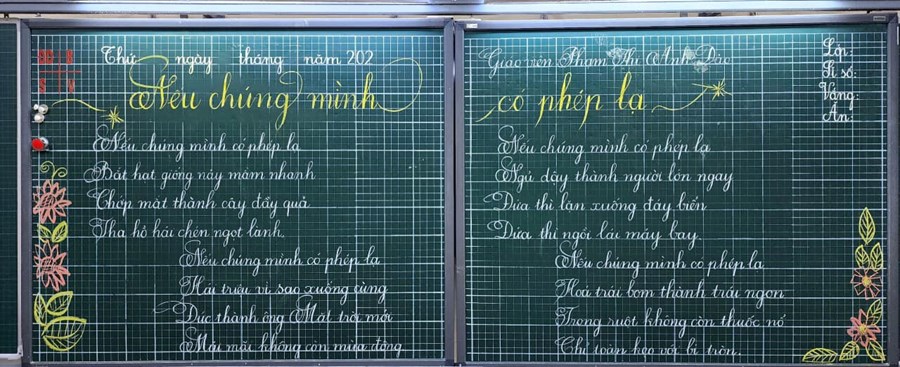 Thứ ngày tháng năm 202
Nếu chúng mình
Nếu chúng mình có phép lạ
Bắt hạt giống nảy mầm nhanh
Chớp mắt thành cây đầy quả
Tha hồ hái chén ngọt lành.
Nếu chúng mình có phép lạ
Hái triệu vì sao xuống cùng
Đúc thành ông Mặt trời mới
Mãi mãi không còn mùa đông.
Giáo viên Phạm Thị Anh Đào
có phép lạ
Nếu chúng mình có phép lạ
Ngủ dậy thành người lớn ngay
Đứa thì lặn xuống đáy biển
Đứa thì ngồi lái máy bay.
Nếu chúng mình có phép lạ
Hoá trái bom thành trái ngon
Trong ruột không còn thuốc nổ
Chỉ toàn kẹo với bi tròn.
Lớp:
Sĩ số:
Vắng:
Ăn: